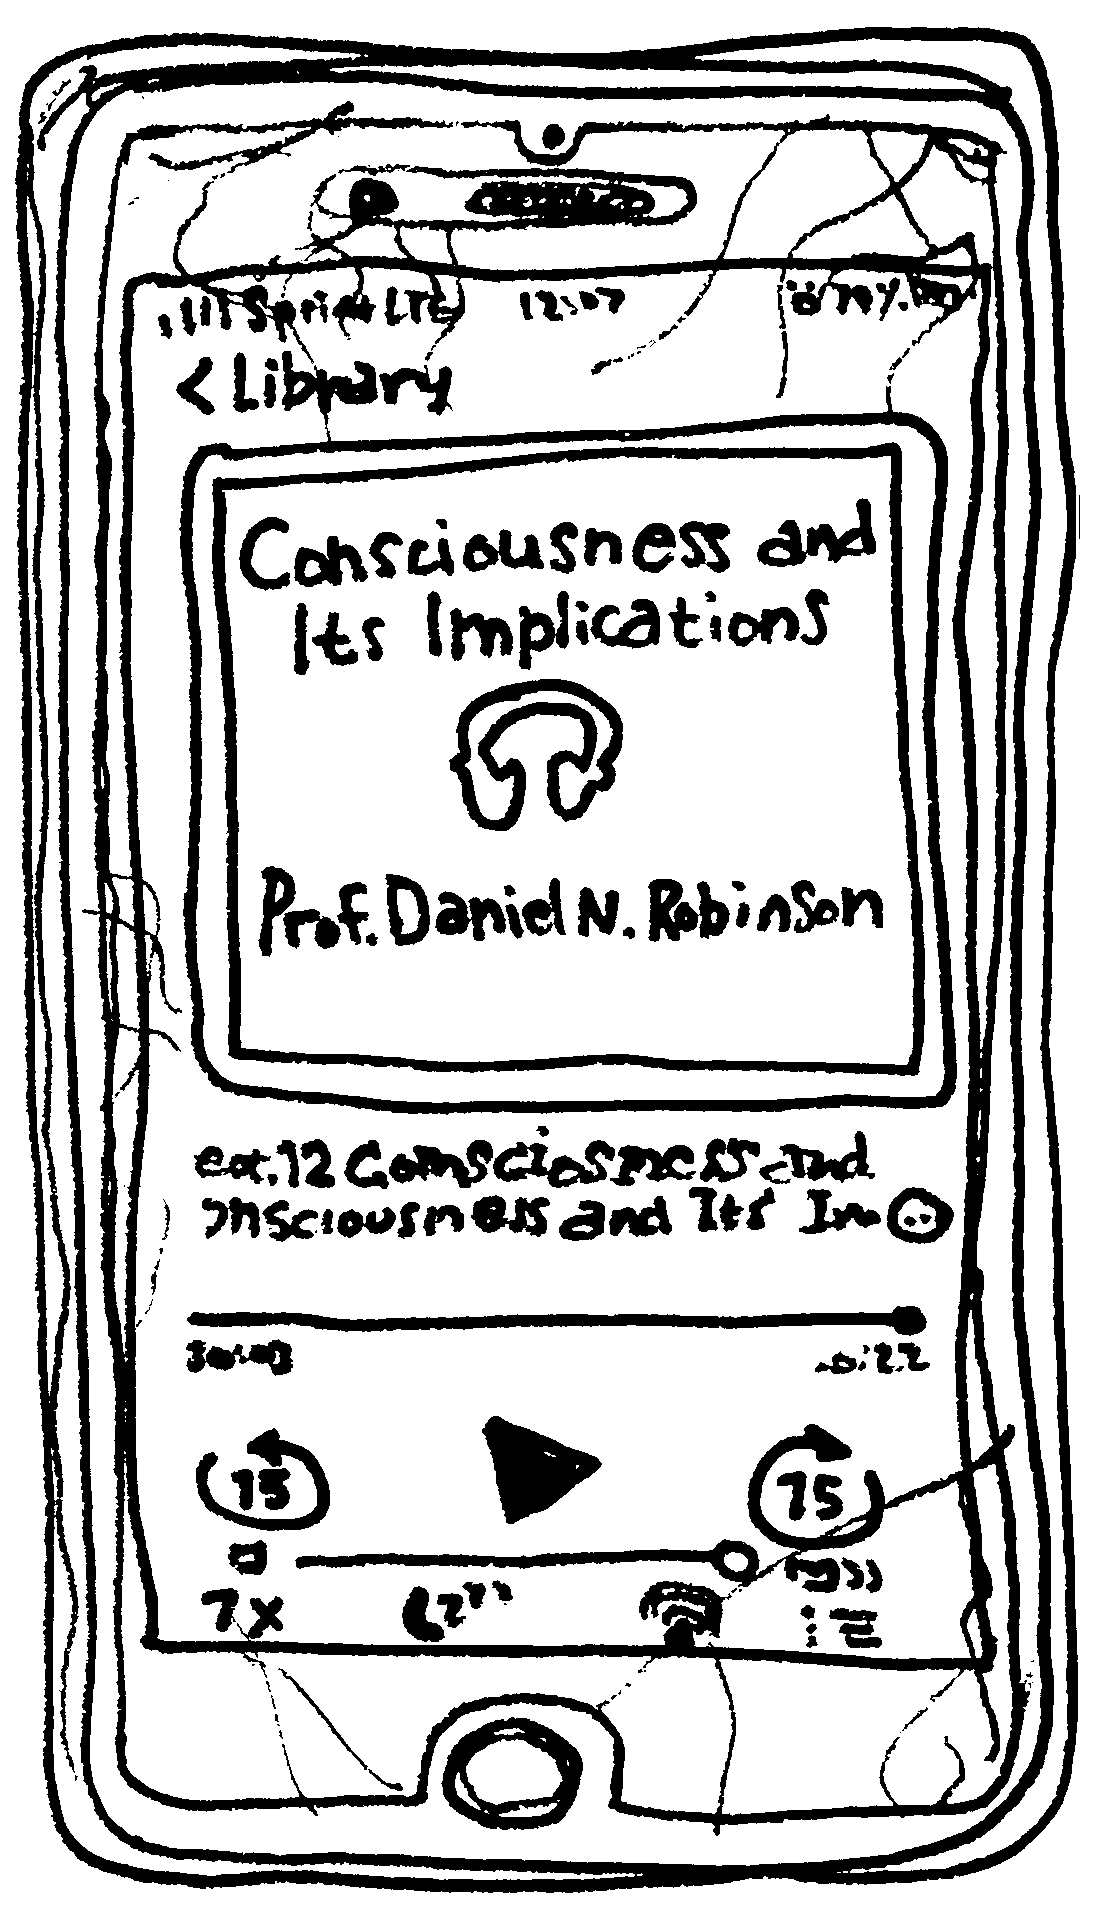 Sprint LTE 12:07
< Library
Consciousness and
Its Implications
Prof. Daniel N. Robinson
12 Comsciosmcess and
onsciousness and Its Im
15 15
7x